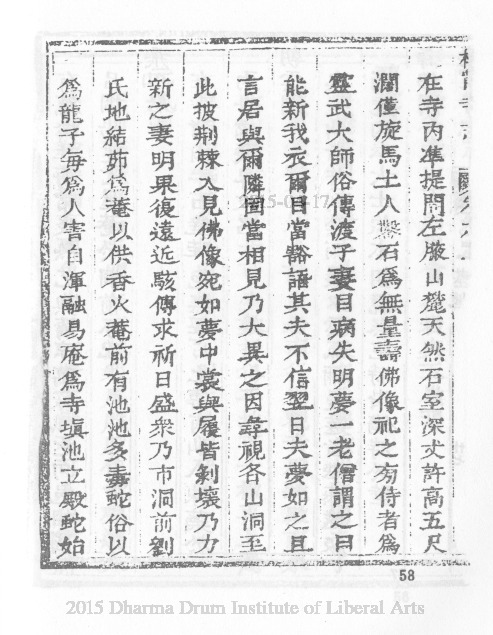 在寺内準提閣左腋山麓天然石室深丈許高五尺
濶僅旋馬土人鑿石爲無量壽佛像祀之旁侍者爲
靈武大師俗傳渡子妻目病失明夢一老僧謂之曰
能新我衣爾目當豁語其夫不信翌日夫夢如之且
言居與爾隣面當相見乃大異之因尋視各山洞至
此披荆棘入見佛像宛如夢中裳與履皆剝壞乃力
新之妻明果復遠近駭傳求祈日盛衆乃市洞前劉
氏地結茆爲菴以供香火菴前有池池多毒蛇俗以
爲龍子毎爲人害自渾融易庵爲寺塡池立殿蛇始
58
2015 Dharma Drum Institute of Liberal Arts